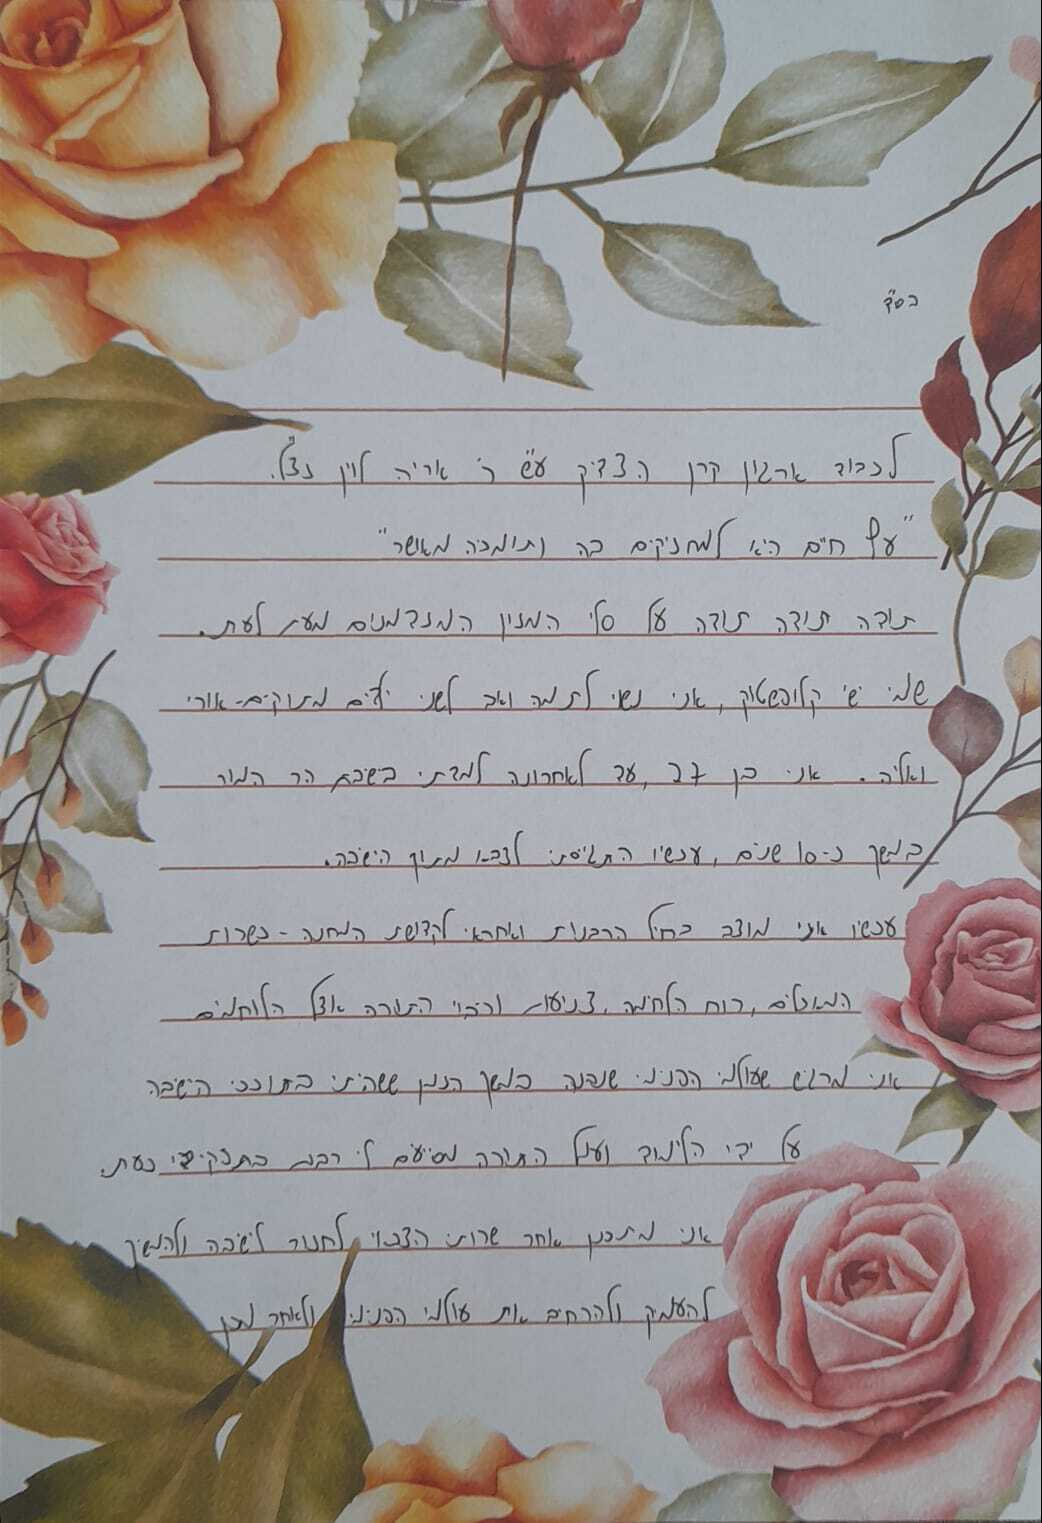 בס"ד
לכבוד ארגון קרן הצדיק ע"ש ר' אריה לוין זצ"ל.
"עץ חיים היא למחזיקים בה ותומכיה מאושר"
תודה תודה תודה על סלי המזון המוזמנים מעת לעת.
שמי ישי קלופשטוק, אני נשוי לתמה ואב לשני ילדים מתוקים-אורי
ואליה. אני בן 27, עד לאחרונה למדתי בישיבת הר המור
במשך כ-10 שנים, עכשיו התגייסתי לצבא מתוך הישיבה.
עכשיו אני מוצב בחיל הרבנות ואחראי לקדושת המחנה - כשרות
המאכלים, רוח הלחימה, צניעות וריבוי התורה אצל הלוחמים
אני מרגיש שעולמי הפנימי שנבנה במשך הזמן ששהיתי בתוככי הישיבה
על ידי הלימוד ועמל התורה מסייעים לי רבות בתפקידי כעת.
אני מתכנן אחר שרותי הצבאי לחזור לישיבה ולהמשיך
להעמיק ולהרחיב את עולמי הפנימי ולאחר מכן